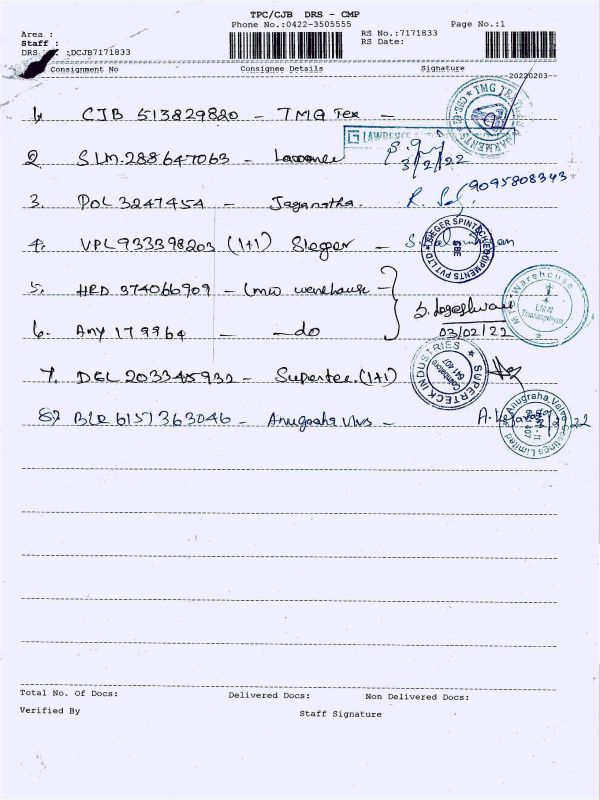 TPC/CJB DRS - CMP
Phone No.:0422-3505555
Page No.:1
Area :
Staff :
RS No.:7171833
RS Date:
DRS :DCJB7171833
Consignment No Consignee Details Signature
20220203
1. CJB 513829820 - TMG Tex -
TMG
GARMENTS
2 SLM.288647063 - Lawrence
LAWRENCE
3/2/22
3. POL 3247454 - Jaganatha.
9095808343
4. VPL 933398203 (1+1) Sieger -
SIEGER SPINTECH EQUIPMENTS PVT LTD
5. HRD 374066909 - Lmw warehouse -
S. Logeshwari
03/02/22
Warehouse
LMW
6. Any 179964 - do
7. DEL 203345932 - Supertec (1+1)
SUPERTECK INDUSTRIES
Coimbatore
641 407
8) BLR 6157363046 - Anugraha Vlvs -
Anugraha Valve Castings Limited
Total No. Of Docs: Delivered Docs: Non Delivered Docs:
Verified By Staff Signature